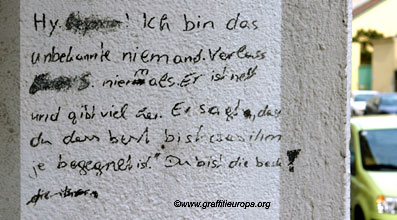 Hy. ! Ich bin das
unbekannte niemand. Verlass
niemals. Er ist nett
und gibt viel zu. Er sagt, das
du das best bist was ihm
je begegnet ist." Du bist die beste!
© www.graffitieuropa.org